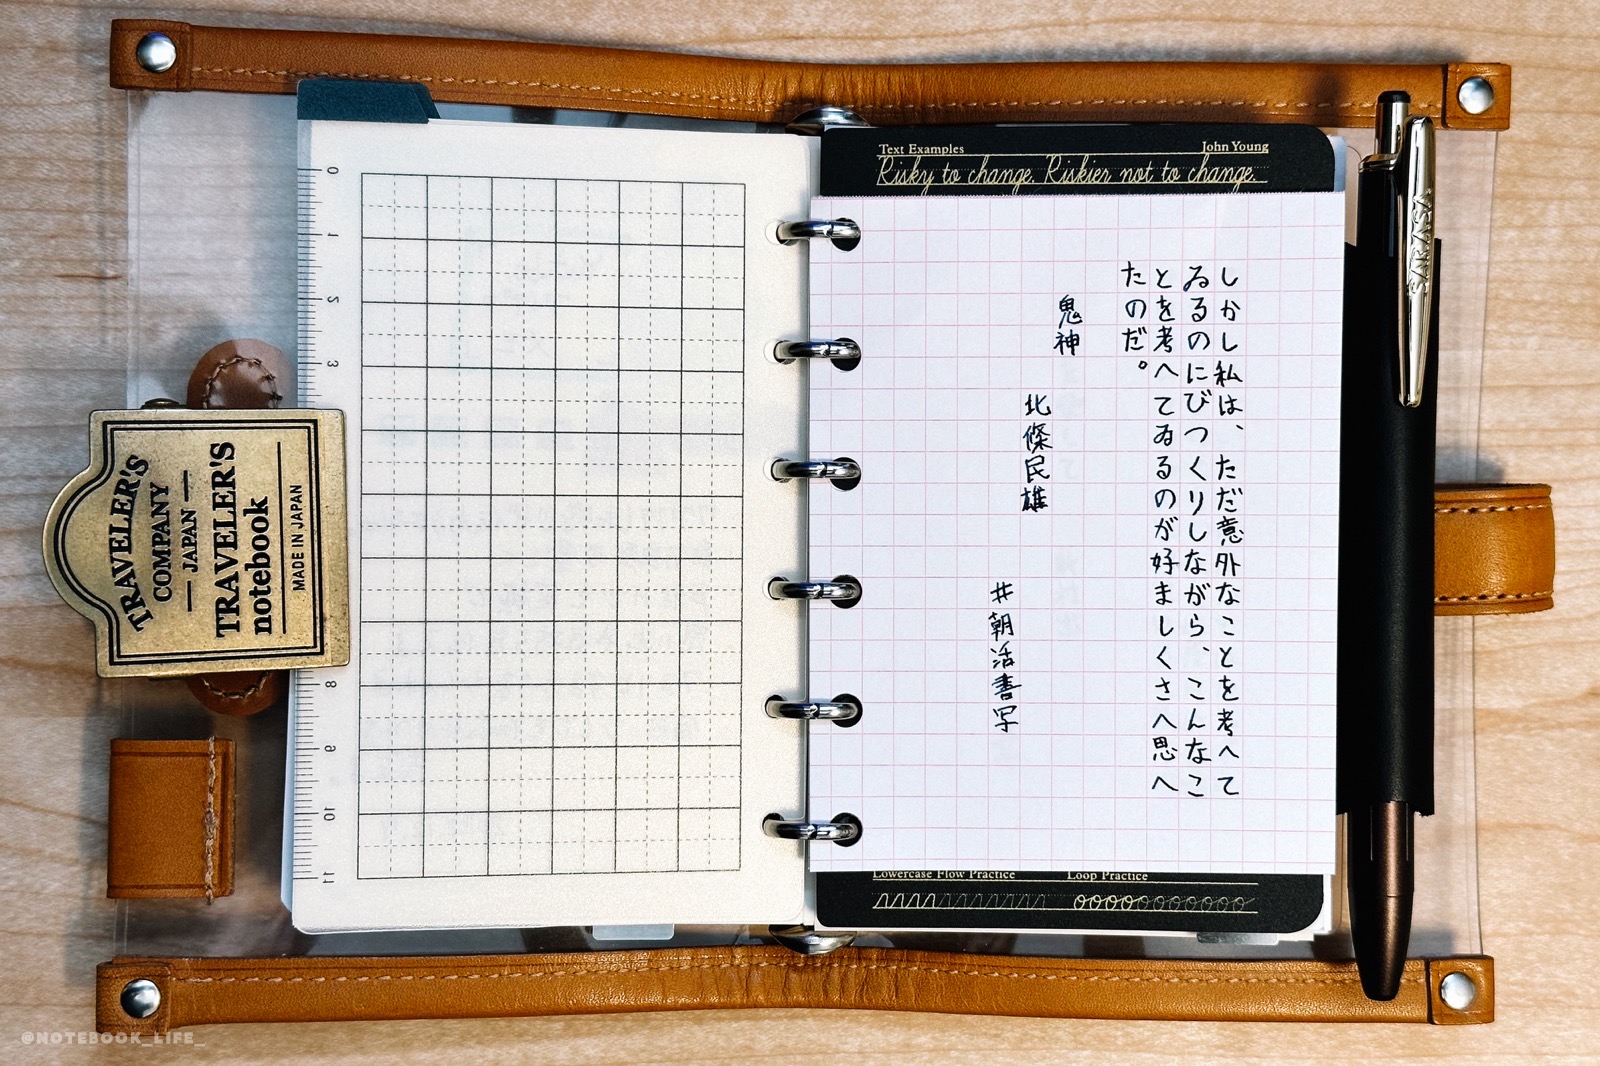 Text Examples
John Young
Risky to change. Riskier not to change.
しかし私は、ただ意外なことを考へて
ゐるのにびつくりしながら、こんなこ
とを考へてゐるのが好ましくさへ思へ
たのだ。
鬼神
北條民雄
#朝活書写
Lowercase Flow Practice
Loop Practice
TRAVELER'S
COMPANY
JAPAN
TRAVELER'S
notebook
MADE IN JAPAN
0
1
2
3
8
9
10
11
SARASA
@NOTEBOOK_LIFE_